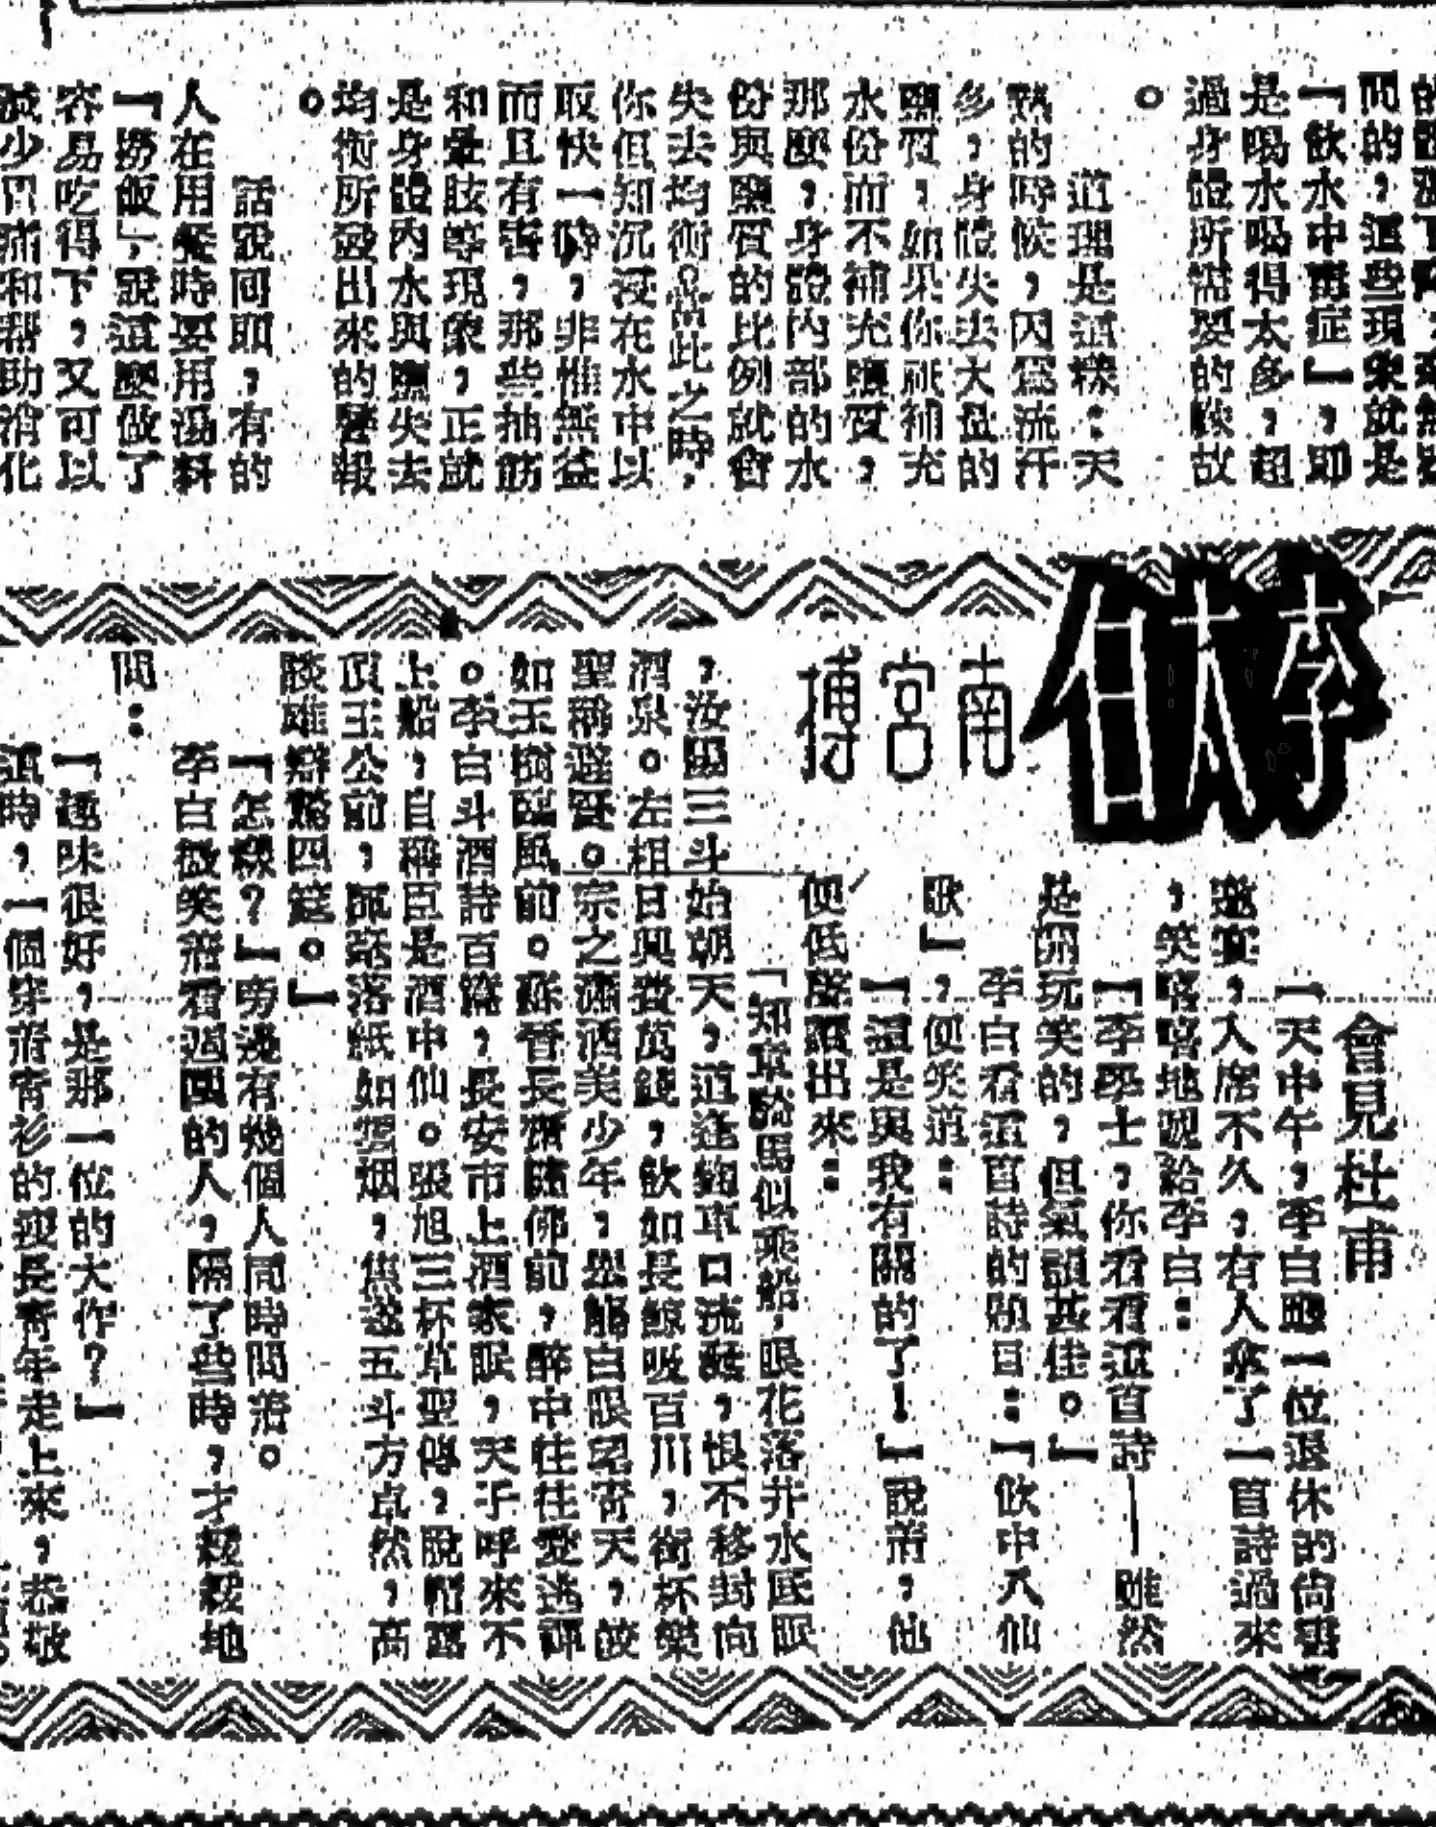 問的,這些現象就是
「飲水中毒症」,即
是喝水喝得太多,超
過身體所需要的緣故
。
道理是這樣:天
熱的時候,因爲流汗
多,身體失去大量的
鹽質,如果你祇補充
水份而不補充鹽質,
那麼,身體內部的水
份與鹽質的比例就會
失去均衡。當此之時,
你但知沉浸在水中以
取快一時,非惟無益
而且有害,那些抽筋
和暈眩等現象,正就
是身體內水與鹽失去
均衡所發出來的警報
。
話說回頭,有的
人在用餐時要用湯料
「撈飯」,說這麼做了
容易吃得下,又可以
減少胃痛和幫助消化
李太白
南宮搏
會見杜甫
一天中午,李白應一位退休的尙書
邀宴,入席不久,有人拿了一首詩過來
,笑嘻嘻地遞給李白:
「李學士,你看看這首詩——雖然
是開玩笑的,但氣韻甚佳。」
李白看這首詩的題目:「飲中八仙
歌」,便笑道:
「這是與我有關的了!」說着,他
便低聲讀出來:
「知章騎馬似乘船,眼花落井水底眠
,汝陽三斗始朝天,道逢麴車口流涎,恨不移封向
酒泉。左相日興費萬錢,飲如長鯨吸百川,銜杯樂
聖稱避賢。宗之瀟洒美少年,舉觴白眼望靑天,皎
如玉樹臨風前。蘇晋長齋繡佛前,醉中往往愛逃禪
。李白斗酒詩百篇,長安市上酒家眠,天子呼來不
上船,自稱臣是酒中仙。張旭三杯草聖傳,脫帽露
頂王公前,揮毫落紙如雲烟,焦遂五斗方卓然,高
談雄辯驚四筵。」
「怎樣?」旁邊有幾個人同時問着。
李白微笑着看週圍的人,隔了些時,才緩緩地
問:
「趣味很好,是那一位的大作?」
這時,一個穿着靑衫的瘦長靑年走上來,恭敬